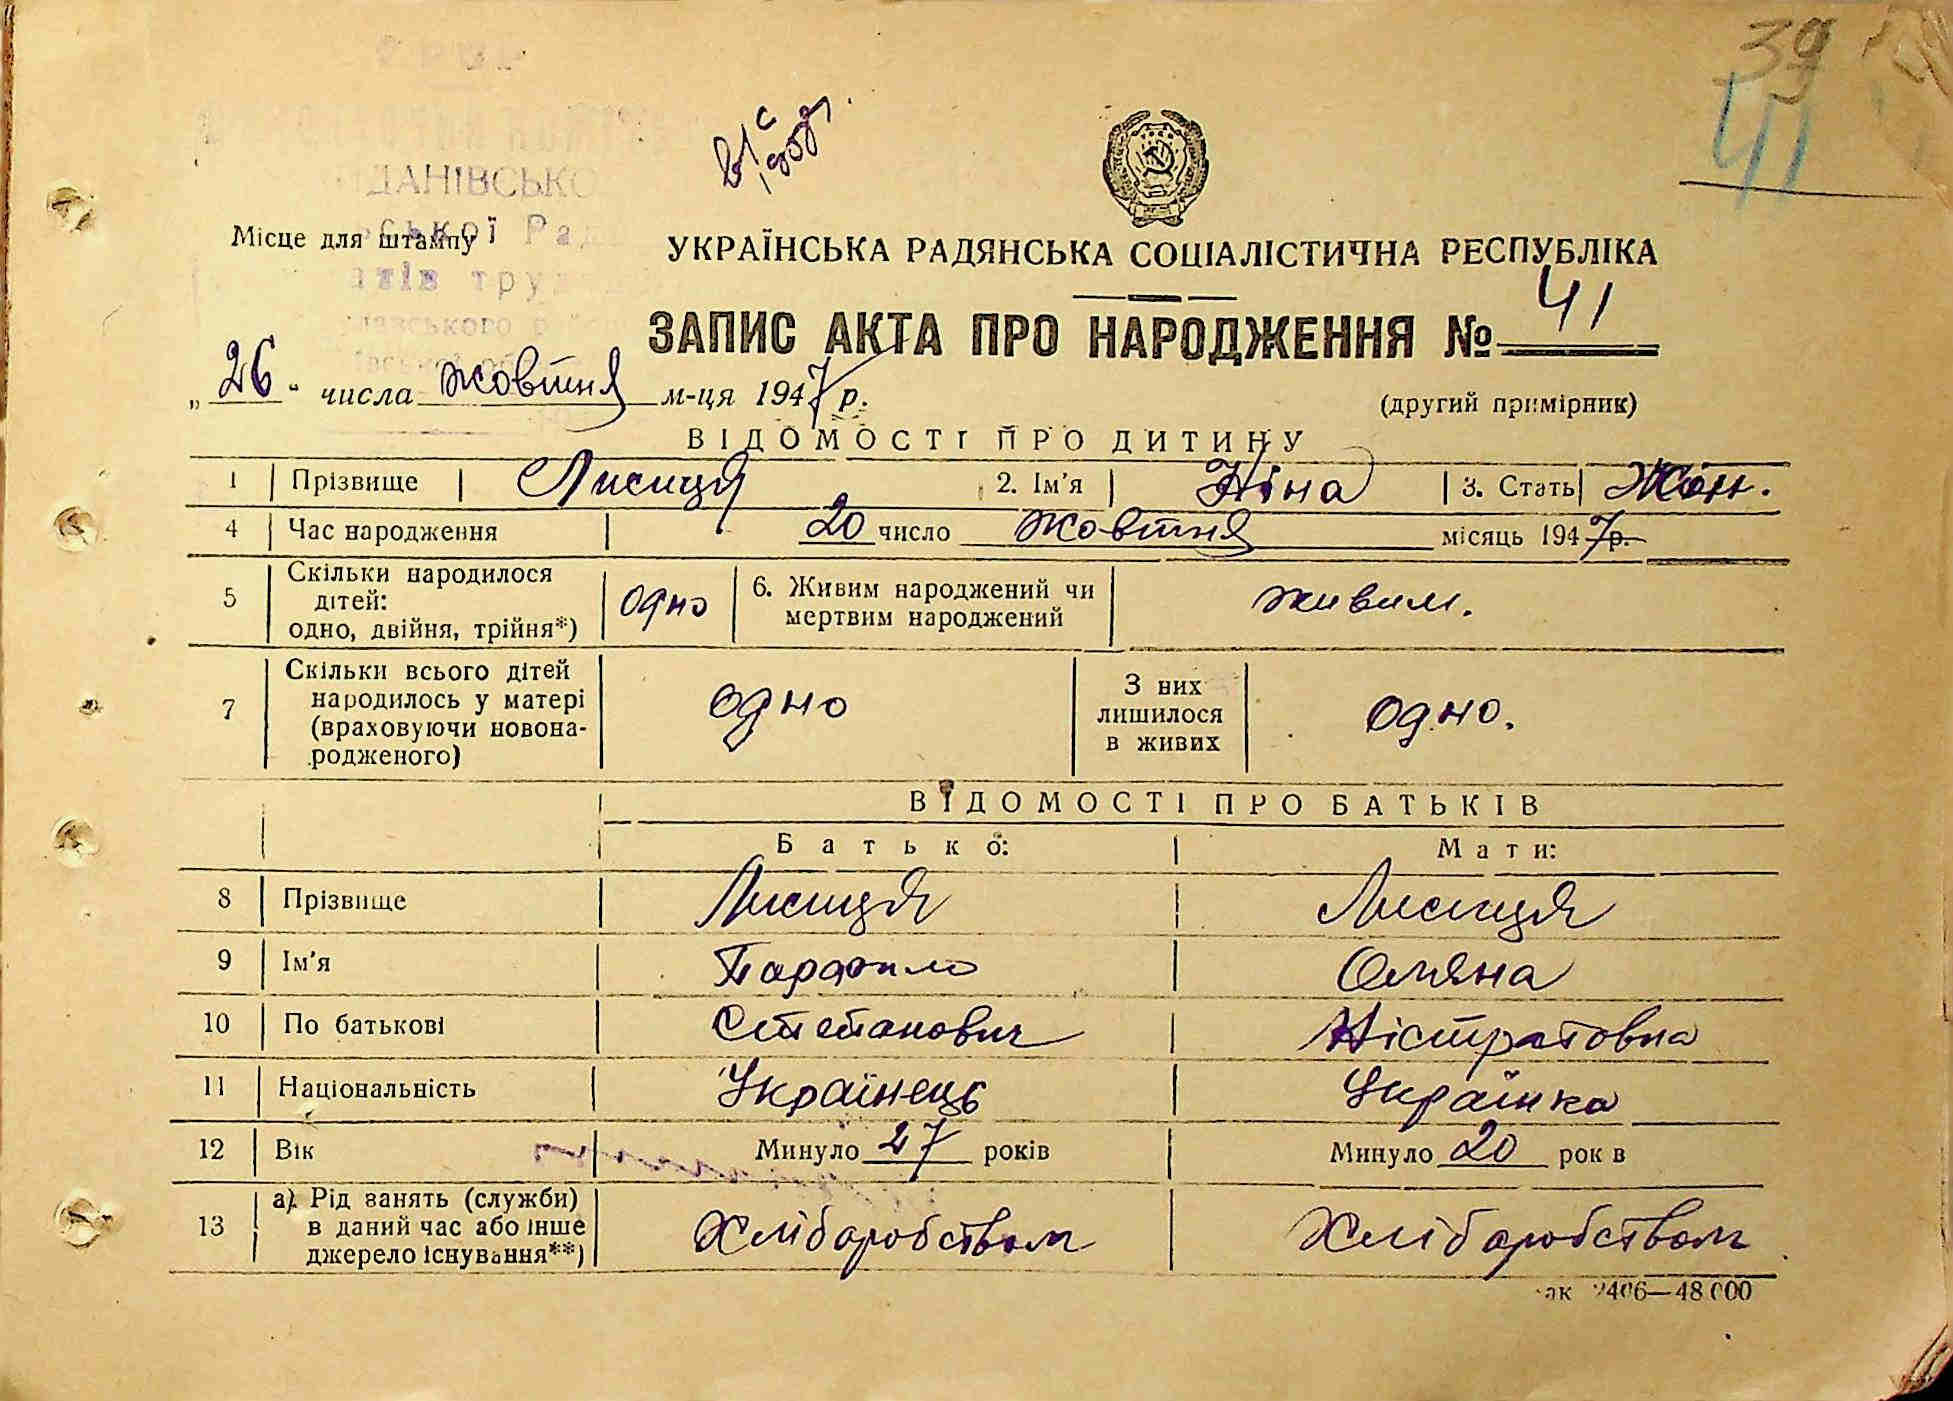 39
41
ДАНІВСЬКО
ської Рад
Місце для штампу
атів труд
УКРАЇНСЬКА РАДЯНСЬКА СОЦІАЛІСТИЧНА РЕСПУБЛІКА
ЗАПИС АКТА ПРО НАРОДЖЕННЯ № 41
„26“ числа жовтня м-ця 1947 р.
(другий примірник)
ВІДОМОСТІ ПРО ДИТИНУ
1 Прізвище Лисиця 2. Ім'я Ніна 3. Стать Жін.
4 Час народження 20 число жовтня місяць 1947р.
5 Скільки народилося дітей: одно, двійня, трійня*) одно 6. Живим народжений чи мертвим народжений живим.
7 Скільки всього дітей народилось у матері (враховуючи новонародженого) одно З них лишилося в живих одно.
ВІДОМОСТІ ПРО БАТЬКІВ
Батько: Мати:
8 Прізвище Лисиця Лисиця
9 Ім'я Парфило Оляна
10 По батькові Степанович Ністратовна
11 Національність Українець Українка
12 Вік Минуло 27 років Минуло 20 рок в
13 а) Рід занять (служби) в даний час або інше джерело існування**) Хліборобством Хліборобством
2406—48 000